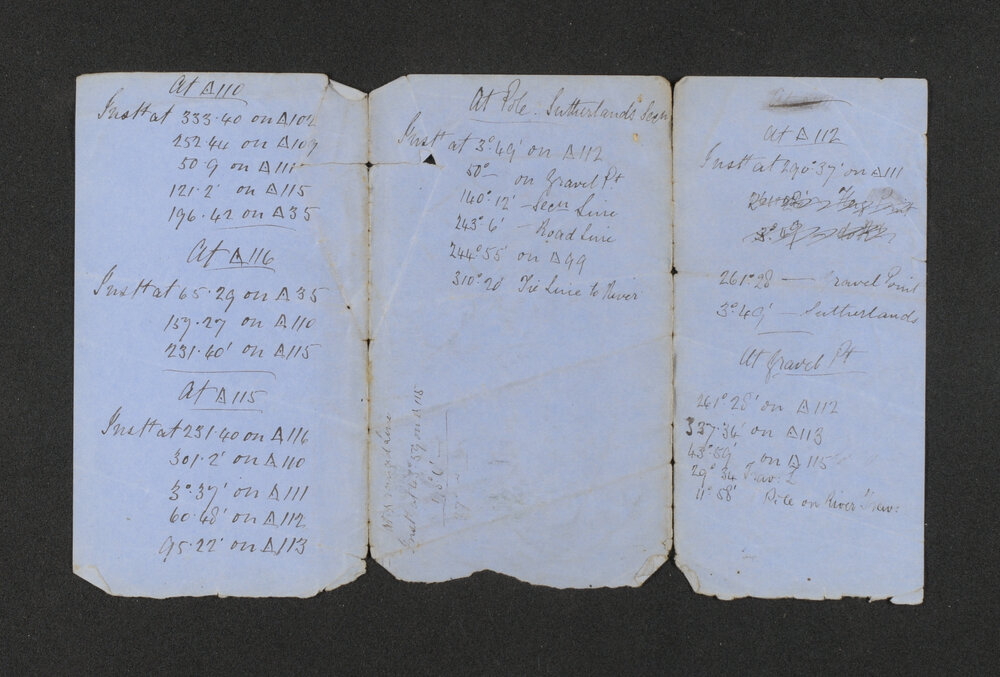 At △110
Instt at 333.40 on △102
252.44 on △109
50.9 on △111
121.2' on △115
196.42 on △35
At △116
Instt at 65.29 on △35
157.27 on △110
231.40' on △115
At △115
Instt at 231.40 on △116
301.2' on △110
3°.37' on △111
60.48' on △112
95.22' on △113
At Pole. Sutherlands Secn
Instt at 3°.49' on △112
50° on Gravel Pt.
140°.12' - Secn Line
243°.6' - Road Line
244°.55' on △99
310°.20' Tie Line to River
Instt at 47°.59 on △115
At △112
Instt at 290°.37' on △111
261°.28' - Gravel Point
3°.49' - Sutherlands
At Gravel Pt
261°.28' on △112
337°.34' on △113
43°.59' on △115
29°.34 Trav: L
11°.58' Pole on River Trav: